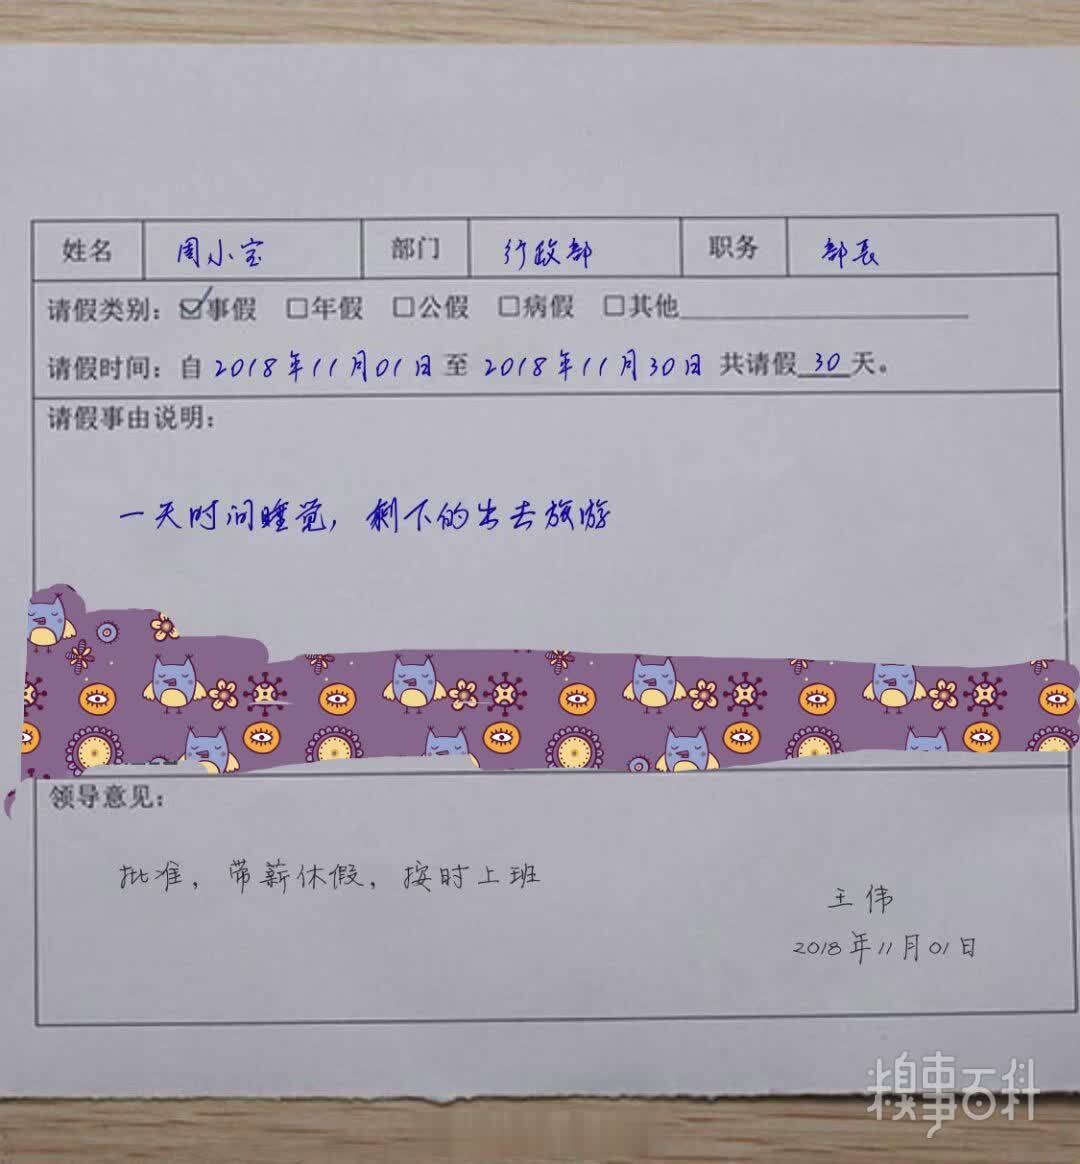 姓名 周小宝 部门 行政部 职务 部长
请假类别：☑事假 □年假 □公假 □病假 □其他
请假时间：自2018年11月01日至2018年11月30日 共请假30天。
请假事由说明：
一天时间睡觉，剩下的出去旅游
领导意见：
批准，带薪休假，按时上班
王伟
2018年11月01日
糗事百科